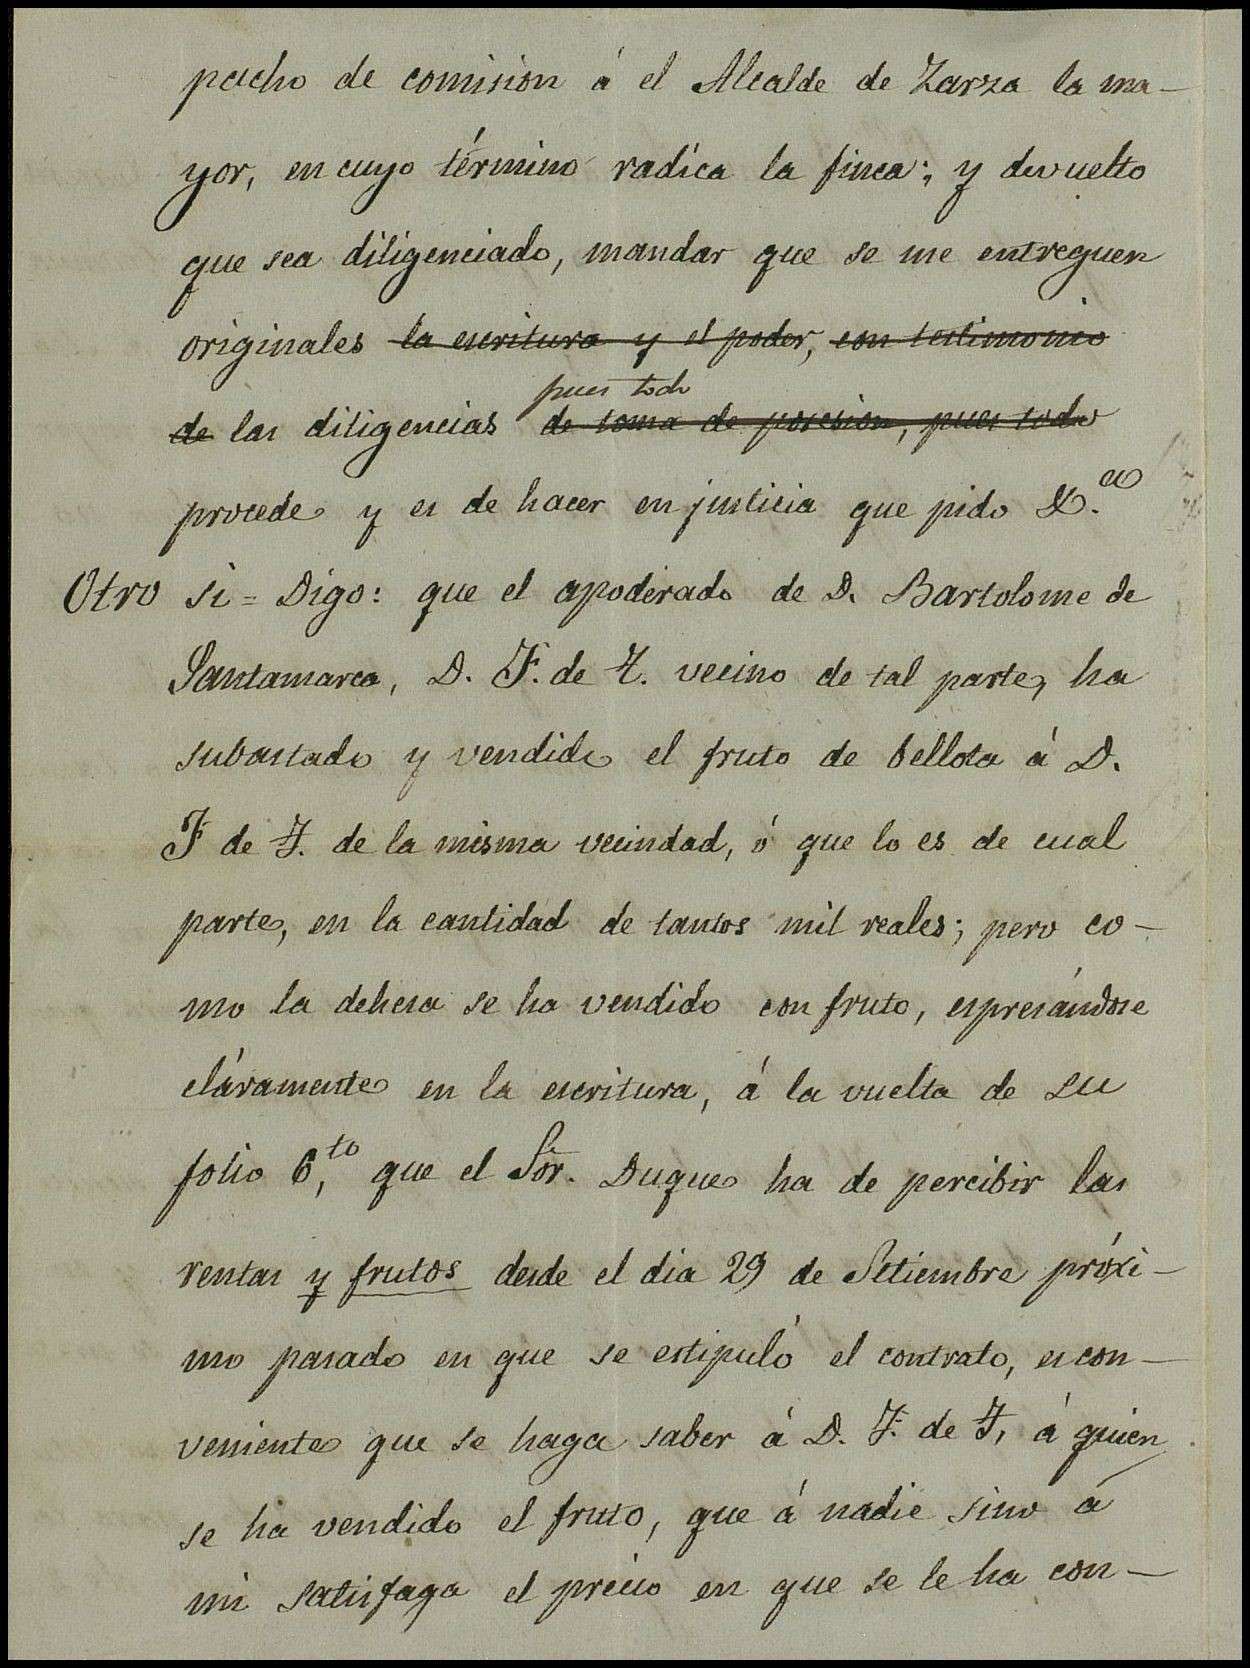 pacho de comision á el Alcalde de Zarza la ma-
yor, en cuyo término radíca la finca; y devuelto
que sea diligenciado, mandar que se me entreguen
originales la escritura y el poder, con testimonio
pues todo
de las diligencias de toma de posesion, pues todo
procede y es de hacer en justicia que pido &.ª
Otro si = Digo: que el apoderado de D. Bartolome de
Santamarca, D. F. de T. vecino de tal parte, ha
subastado y vendido el fruto de bellota á D.
F de T. de la misma vecindad, ó que lo es de cual
parte, en la cantidad de tantos mil reales; pero co-
mo la dehesa se ha vendido con fruto, espresándose
cláramente en la escritura, á la vuelta de su
folio 6,to que el Sor. Duque ha de percibir las
rentas y frutos desde el dia 29 de Setiembre próxi-
mo pasado en que se estipuló el contrato, es con-
veniente que se haga saber á D. F. de T, á quien
se ha vendido el fruto, que á nadie sino á
mi satisfaga el precio en que se le ha con-